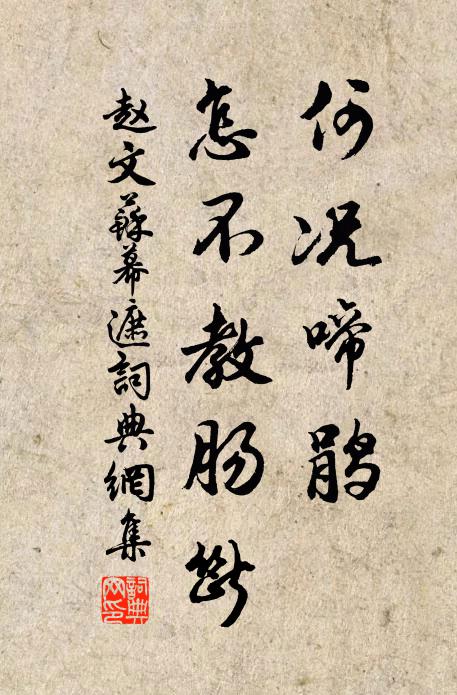 何况啼鹃
怎不教肠断
赵文蘇幕遮詞典網集
詞典網印